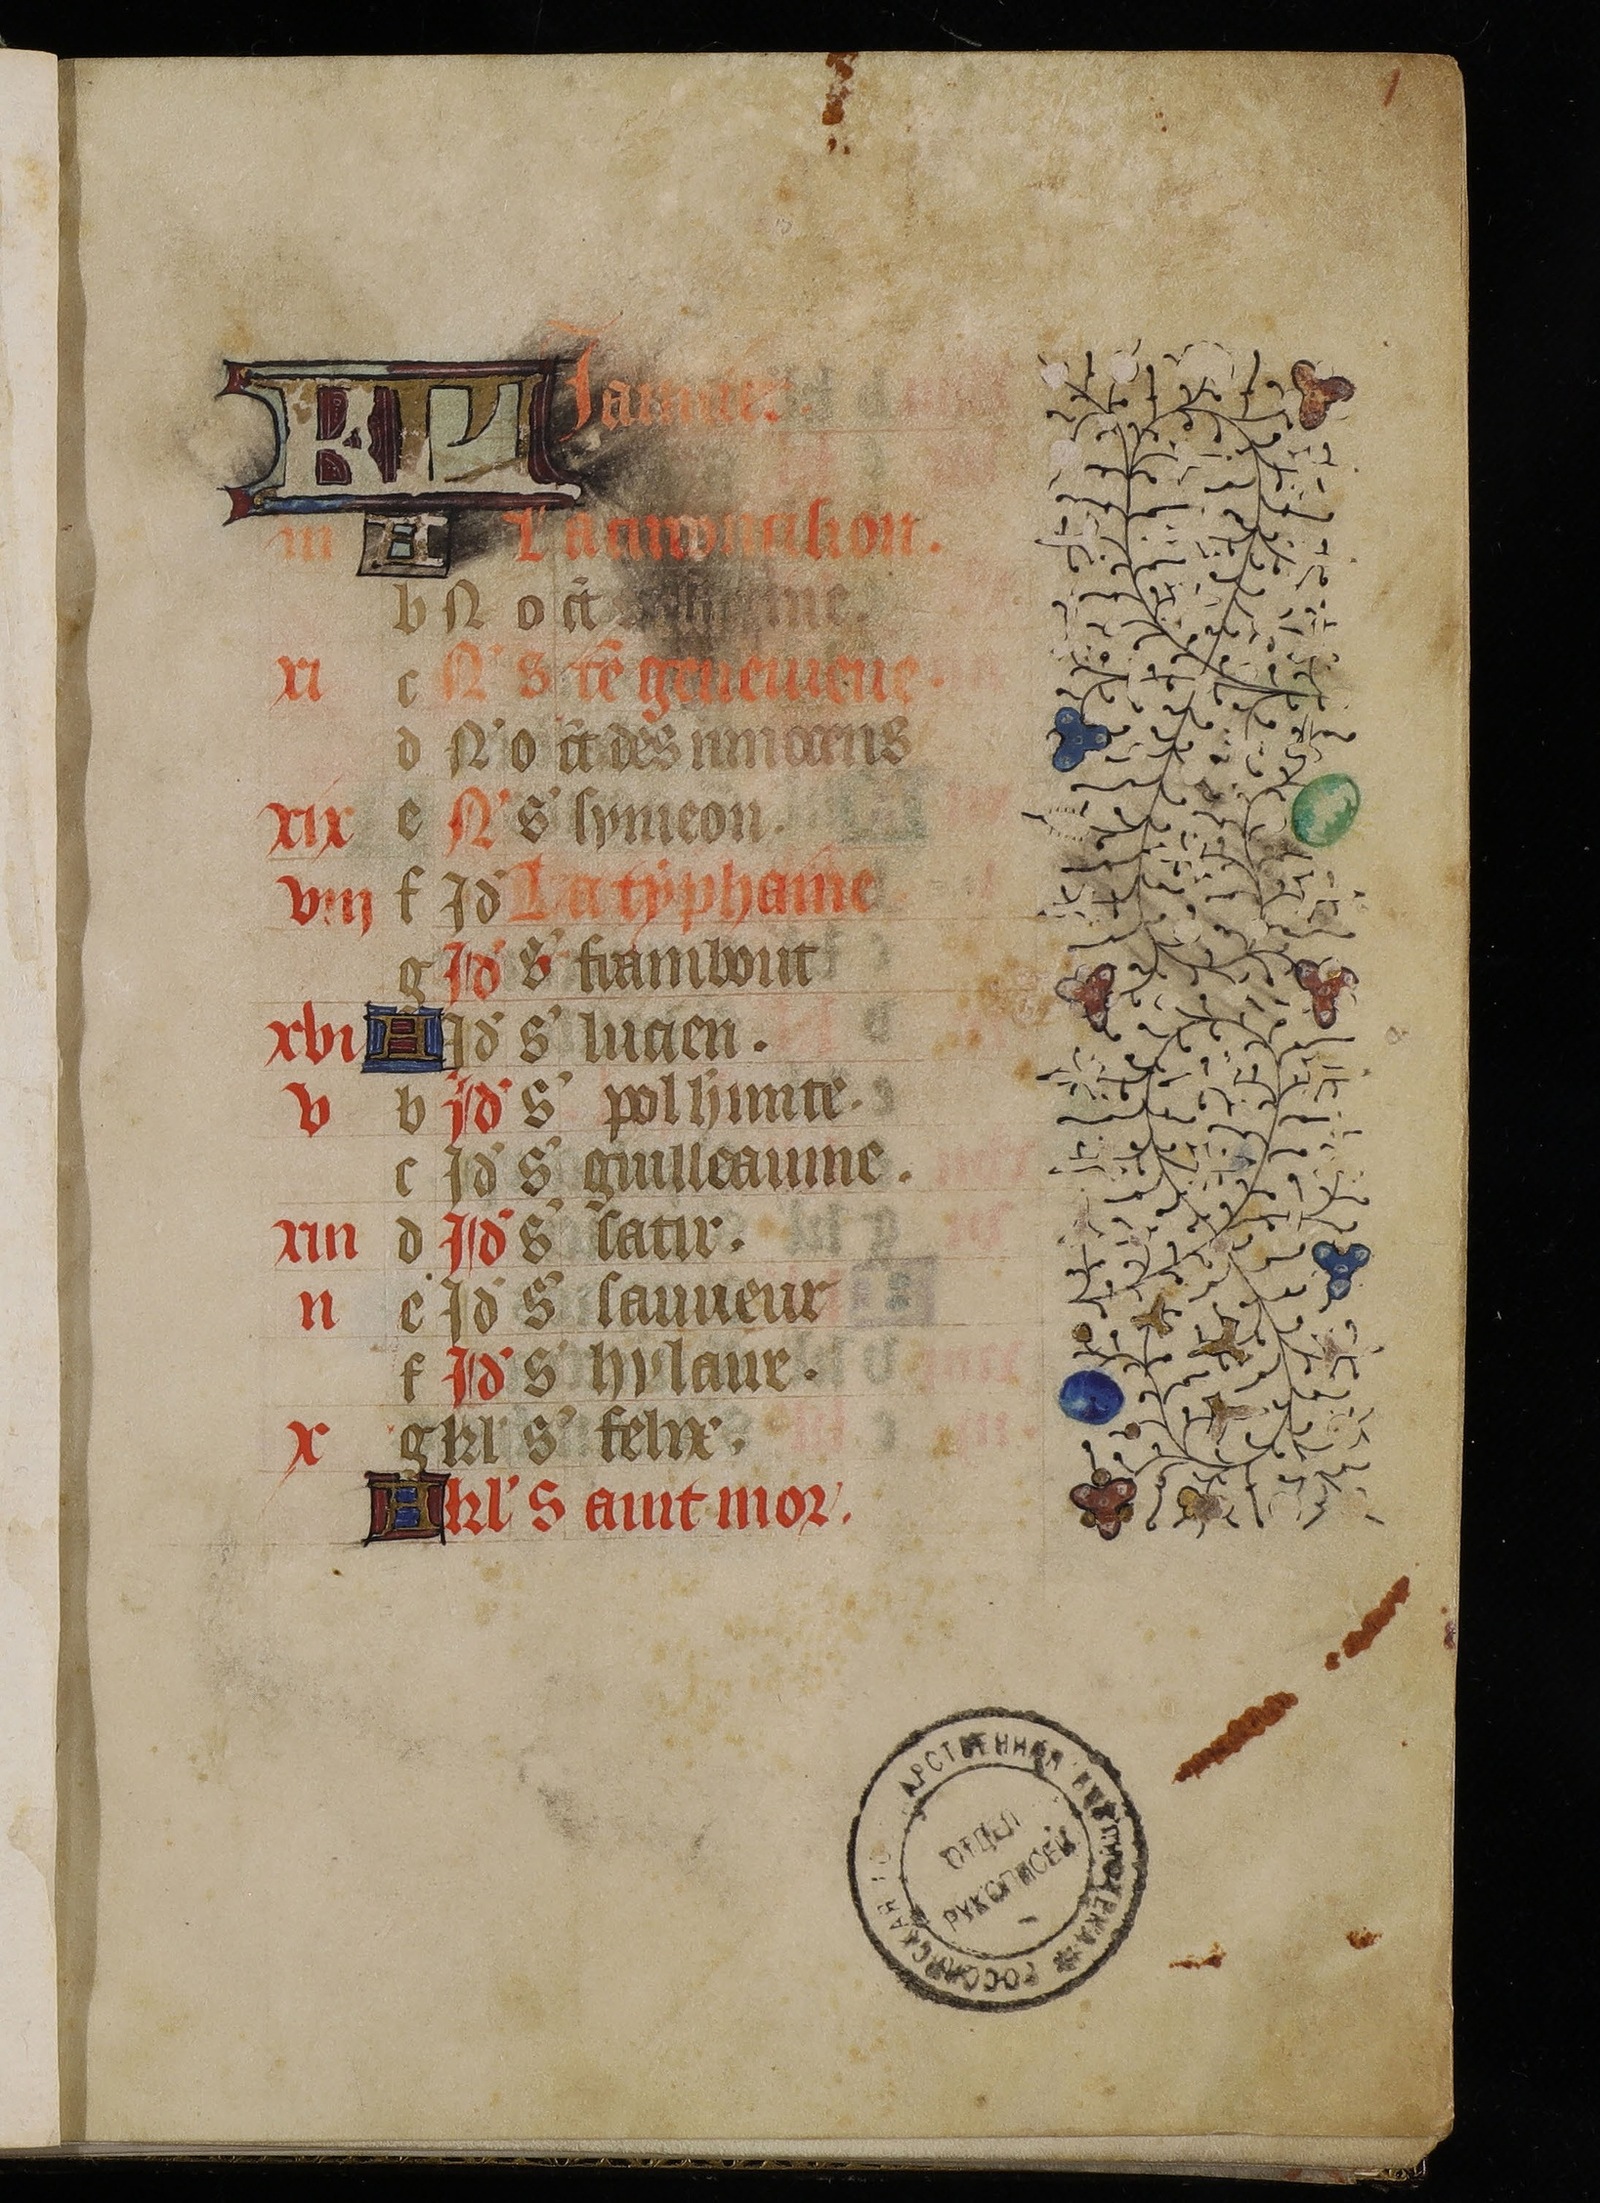 1
KL Januier.
iii A La circoncision.
b N oct
xi c N S te geneuieue.
d N o ct des innocens
xix e N S symeon.
viii f Id La typhaine
g Id S frambout
xvi A Id S lucien.
v b Id S pol hmite.
c Id S guilleaume.
xiii d Id S satir.
ii e Id S sauueur
f Id S hylaire.
x g kl S felix.
A kl S aint mor.
РОССИЙСКАЯ ГОСУДАРСТВЕННАЯ БИБЛИОТЕКА
ОТДЕЛ
РУКОПИСЕЙ